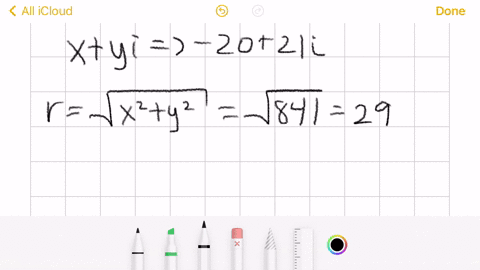 All iCloud Done
x+yi=>-20+21i
r=√x²+y² = √841 = 29